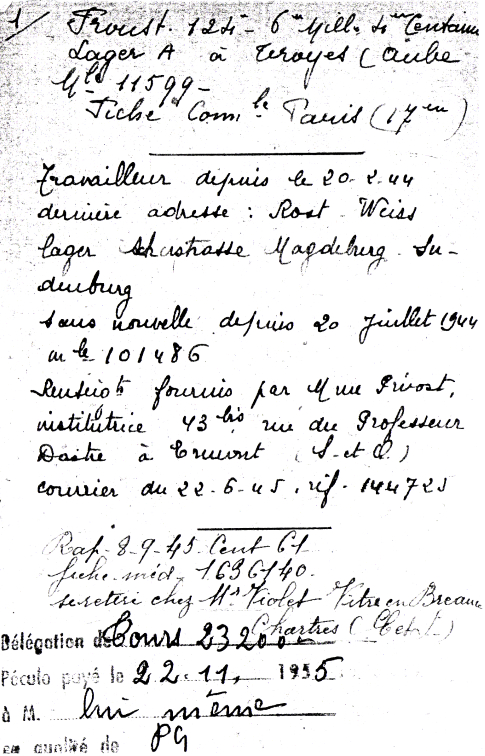 1/ Froust. 124i - 6e Mille 4me Centaine
Lager A à Troyes (Aube
Mle 11599 -
Fiche Comle Paris (17em)
Travailleur depuis le 20-2-44
dernière adresse : Rost Weiss
lager Magdeburg. Su-
denburg
sans nouvelle depuis 20 juillet 1944
mle 101486
Renseigts fournis par Mme Prévost,
institutrice 43bis rue du Professeur
Dastre à Ermont (S-et O.)
courrier du 22-6-45. réf. 144725
Rap. 8-9-45 Cent 61
fiche méd. 1636140.
se retire chez Mr Violet Vitré en Beauce
Chartres (E et L)
Délégation de Tours 23200
Pécule payé le 22.11. 1955
à M. lui même
en qualité de PG